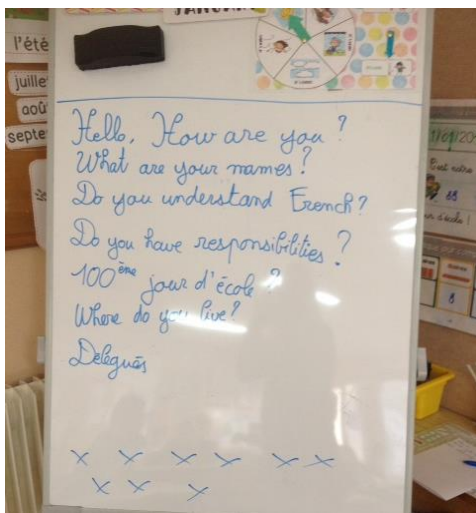 JANUARY
l'été
juille
aoû
septe
Hello, How are you?
What are your names?
Do you understand French?
Do you have responsibilities?
100ème jour d'école?
Where do you live?
Délégués
x x x x x x
x x x